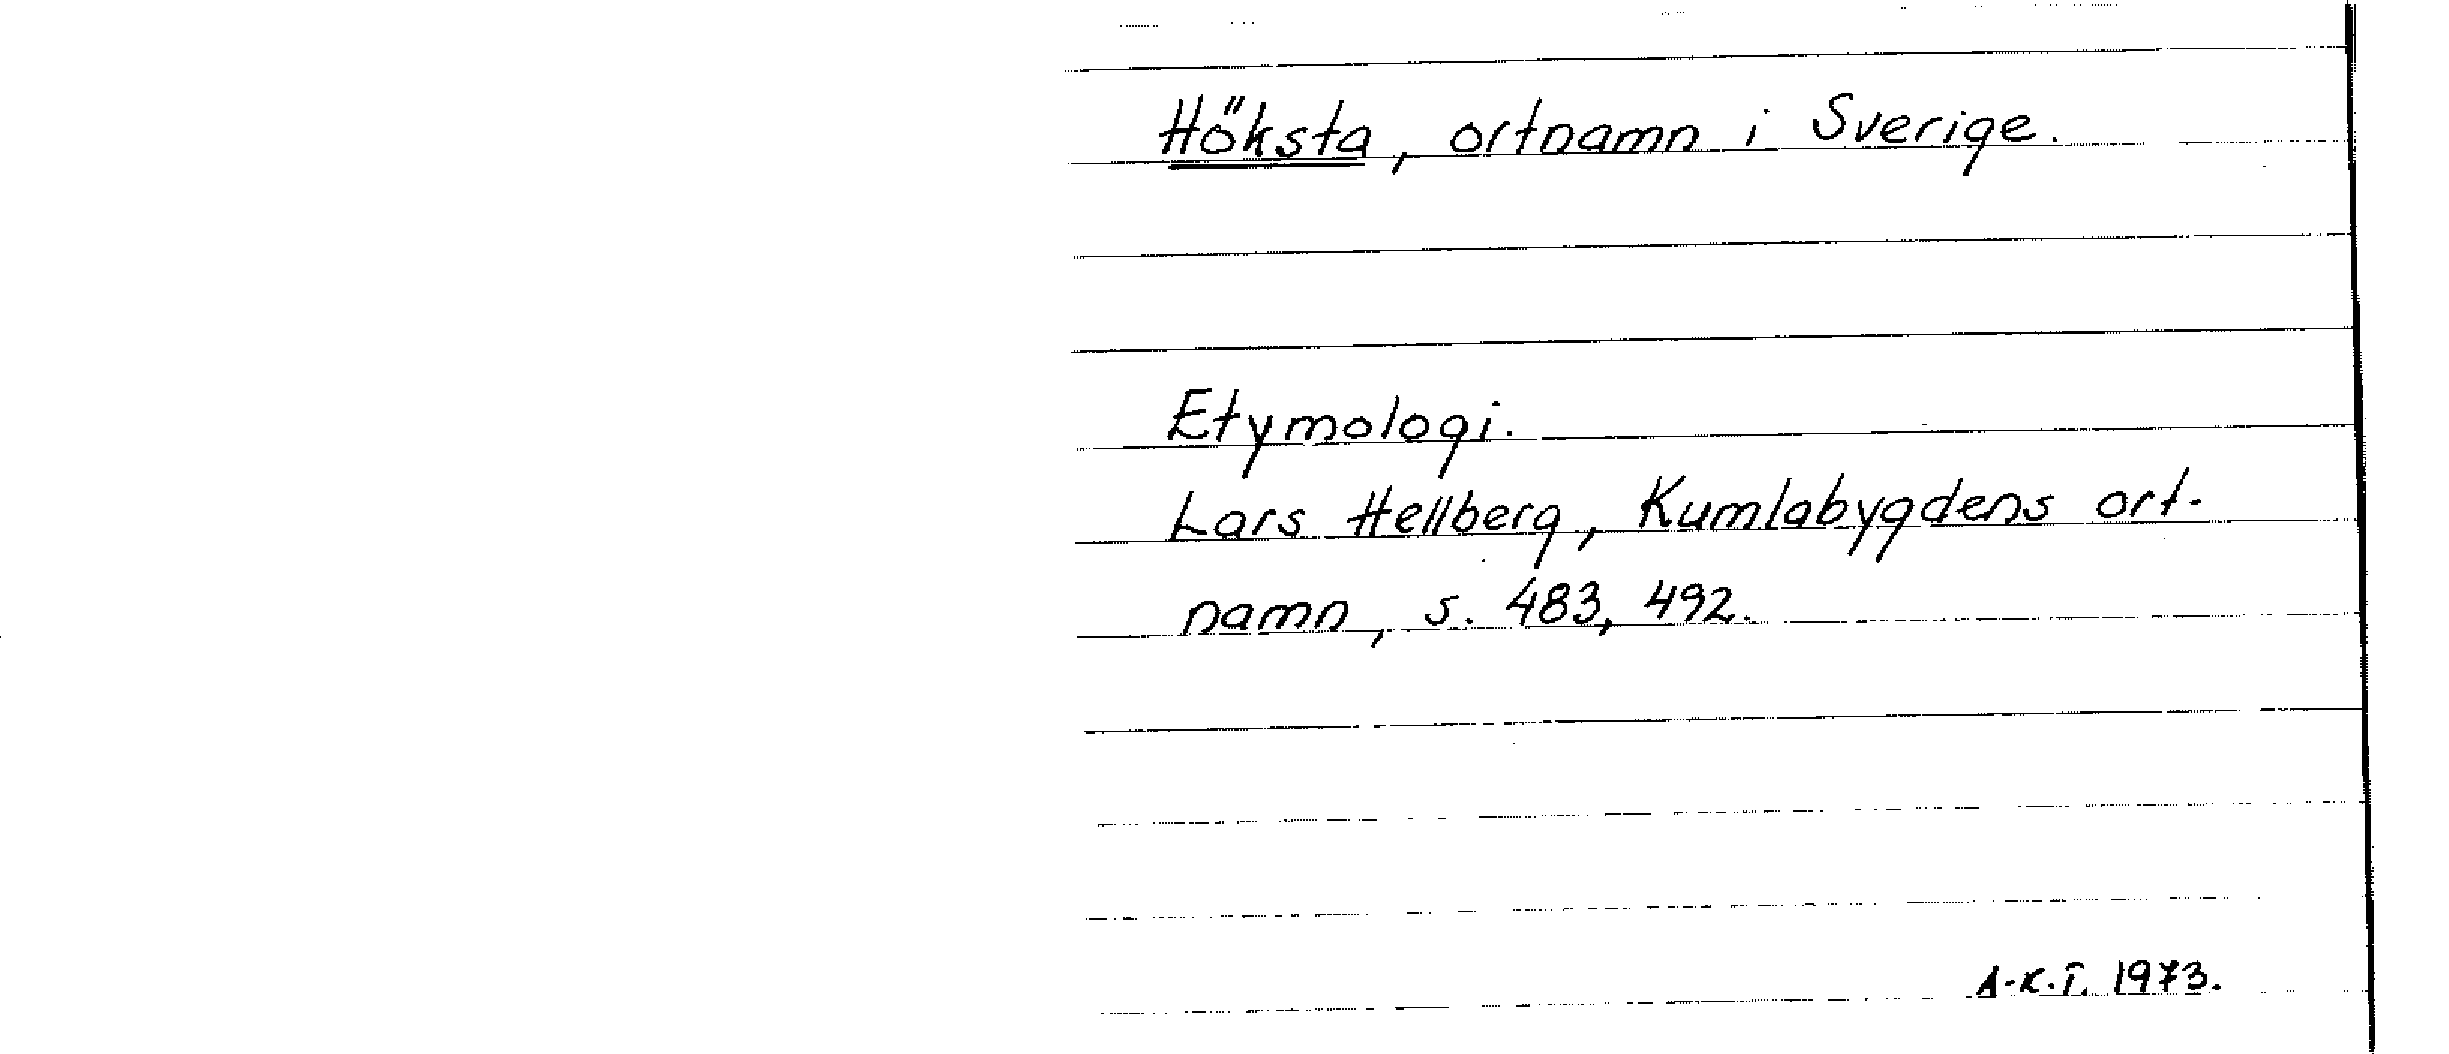 Höksta, ortnamn i Sverige.
Etymologi.
Lars Hellberg, Kumlabygdens ort-
namn, s. 483, 492.
A-K.T. 1973.